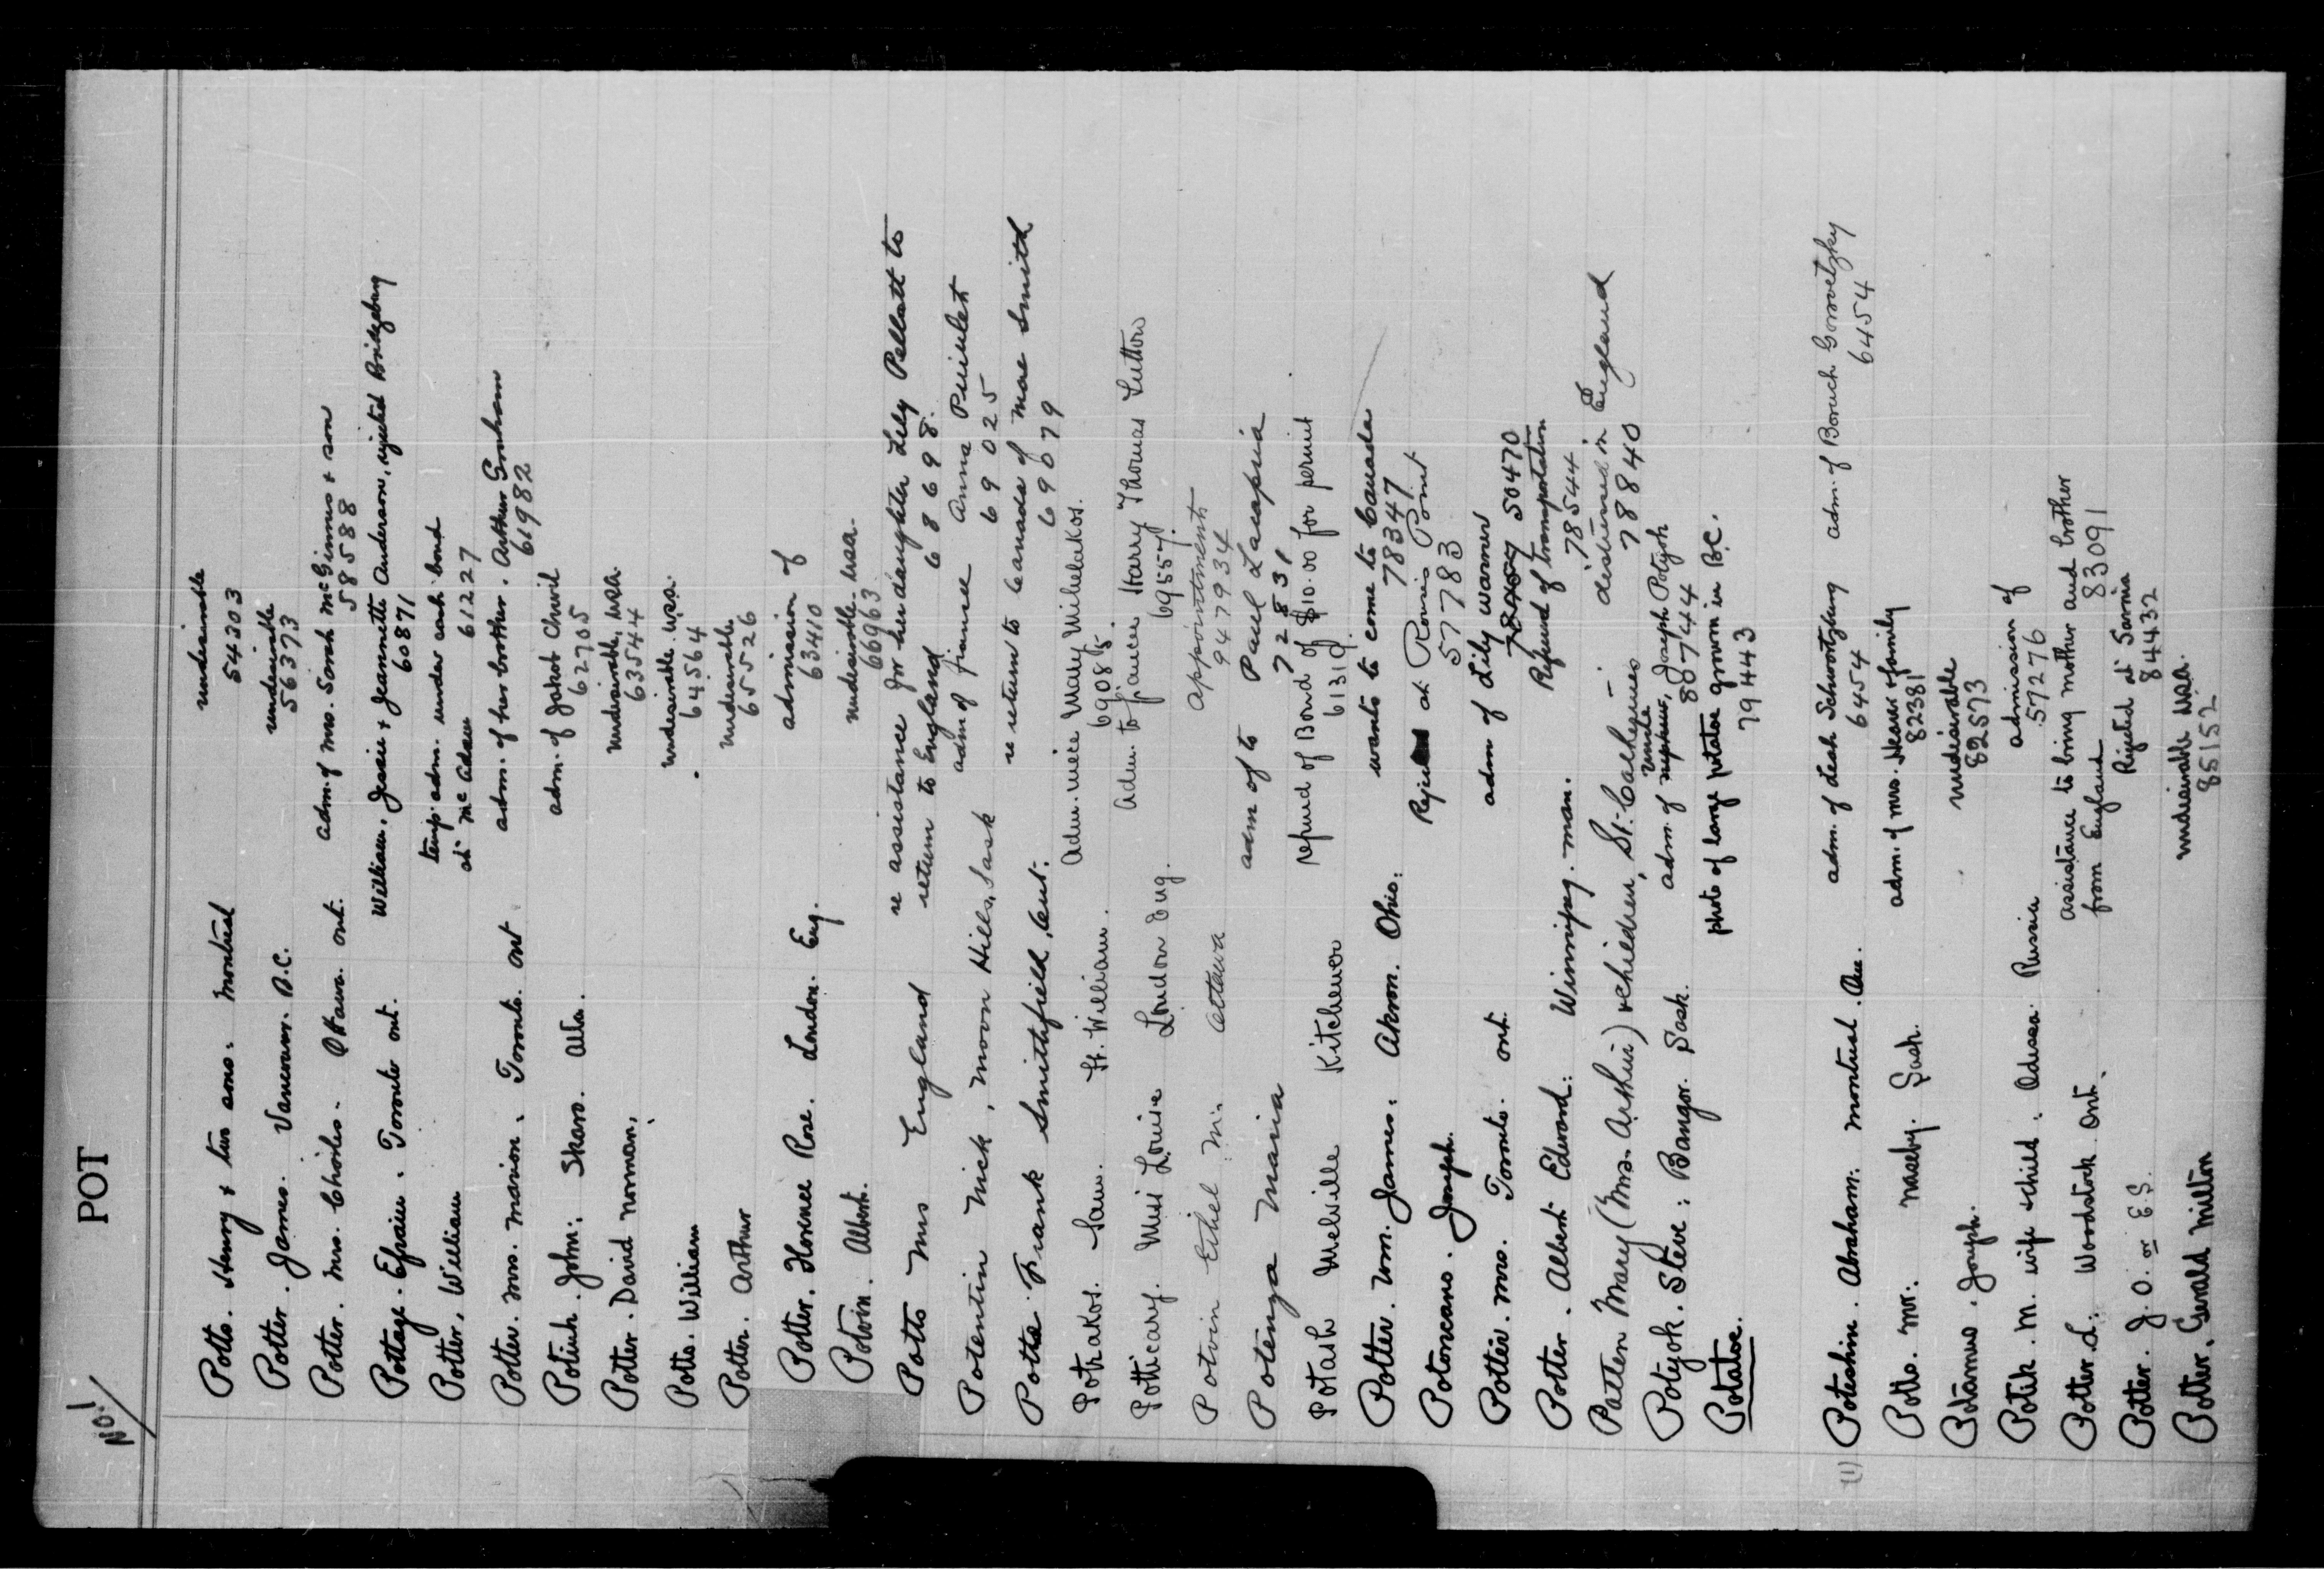 No. 1
POT
Potts. Henry & two sons. Montreal undesirable
54303
Potter. James. Vancouver. B.C. undesirable
56373
Potter. Mrs. Charles. Ottawa. Ont. adm. of Mrs. Sarah McGinnis & son
58588
Pottage. Efraim. Toronto Ont. William, Jessie & Jeannette Anderson, rejected Bridgeburg
60871
Potter, William temp. adm. under cash bond
at McAdam 61227
Potter. Mrs. Marion. Toronto. Ont adm. of her brother. Arthur Graham
61982
Potiuk. John: Skaro. Alta. adm. of Jakot Chwil
62705
Potter. David Norman. undesirable, USA.
63544
Potts. William undesirable. USA.
64564
Potter. Arthur undesirable
65526
Potter. Florence Rose. London. Eng. admission of
63410
Potvin. Albert. undesirable. USA.
66963
Potts Mrs England re assistance for her daughter Lily Pellatt to
return to England 68698.
Potentin Nick, Moon Hills, Sask adm of fiancee Anna
69025
Potts Frank Smithfield, Ont. re return to Canada of Mae Smith
69079
Potrakos. Sam. Ft. William. Adm. niece Mary Mihelakos.
69085.
Potticary. Miss Louise London Eng. Adm. to fiancee Harry Thomas Sutton
69557.
Potvin Ethel M. Ottawa appointment
947934
Potenza Maria adm of to Paul
72831
Potash Melville Kitchener refund of Bond of $10.00 for permit
61310.
Potter. Wm. James. Akron. Ohio: wants to come to Canada
78347
Joseph. at Rouses Point
577783
Potter. Mrs. Toronto. Ont. adm of Lily Warner
50470
Potter. Albert Edward: Winnipeg. Man. Refund of transportation
78544
Patten Mary (Mrs. Arthur) & children, St. Catherines – distressed in England
78840
Potyok. Steve: Bangor. Sask. adm. of nephew, Joseph Potyok
uncle
887444
Potatoe. photo of large potatoe grown in B.C.
79443
(1) Poteshin. Abraham. Montreal. Que. adm. of Leah Schwortzburg adm. of Boruch Gorovetzky
6454 6454
Potts. Mr. Naseby. Sask. adm. of Mrs. & family
82381
Potamus. Joseph. undesirable
82573
Potik. M. wife & child. Odessa. Russia admission of
57276
Potter. L: Woodstock Ont. assistance to bring mother and brother
from England 83091
Potter. J. O. or E. S. Rejected at Sarnia
84432
Potter. Gerald Milton undesirable USA.
85152